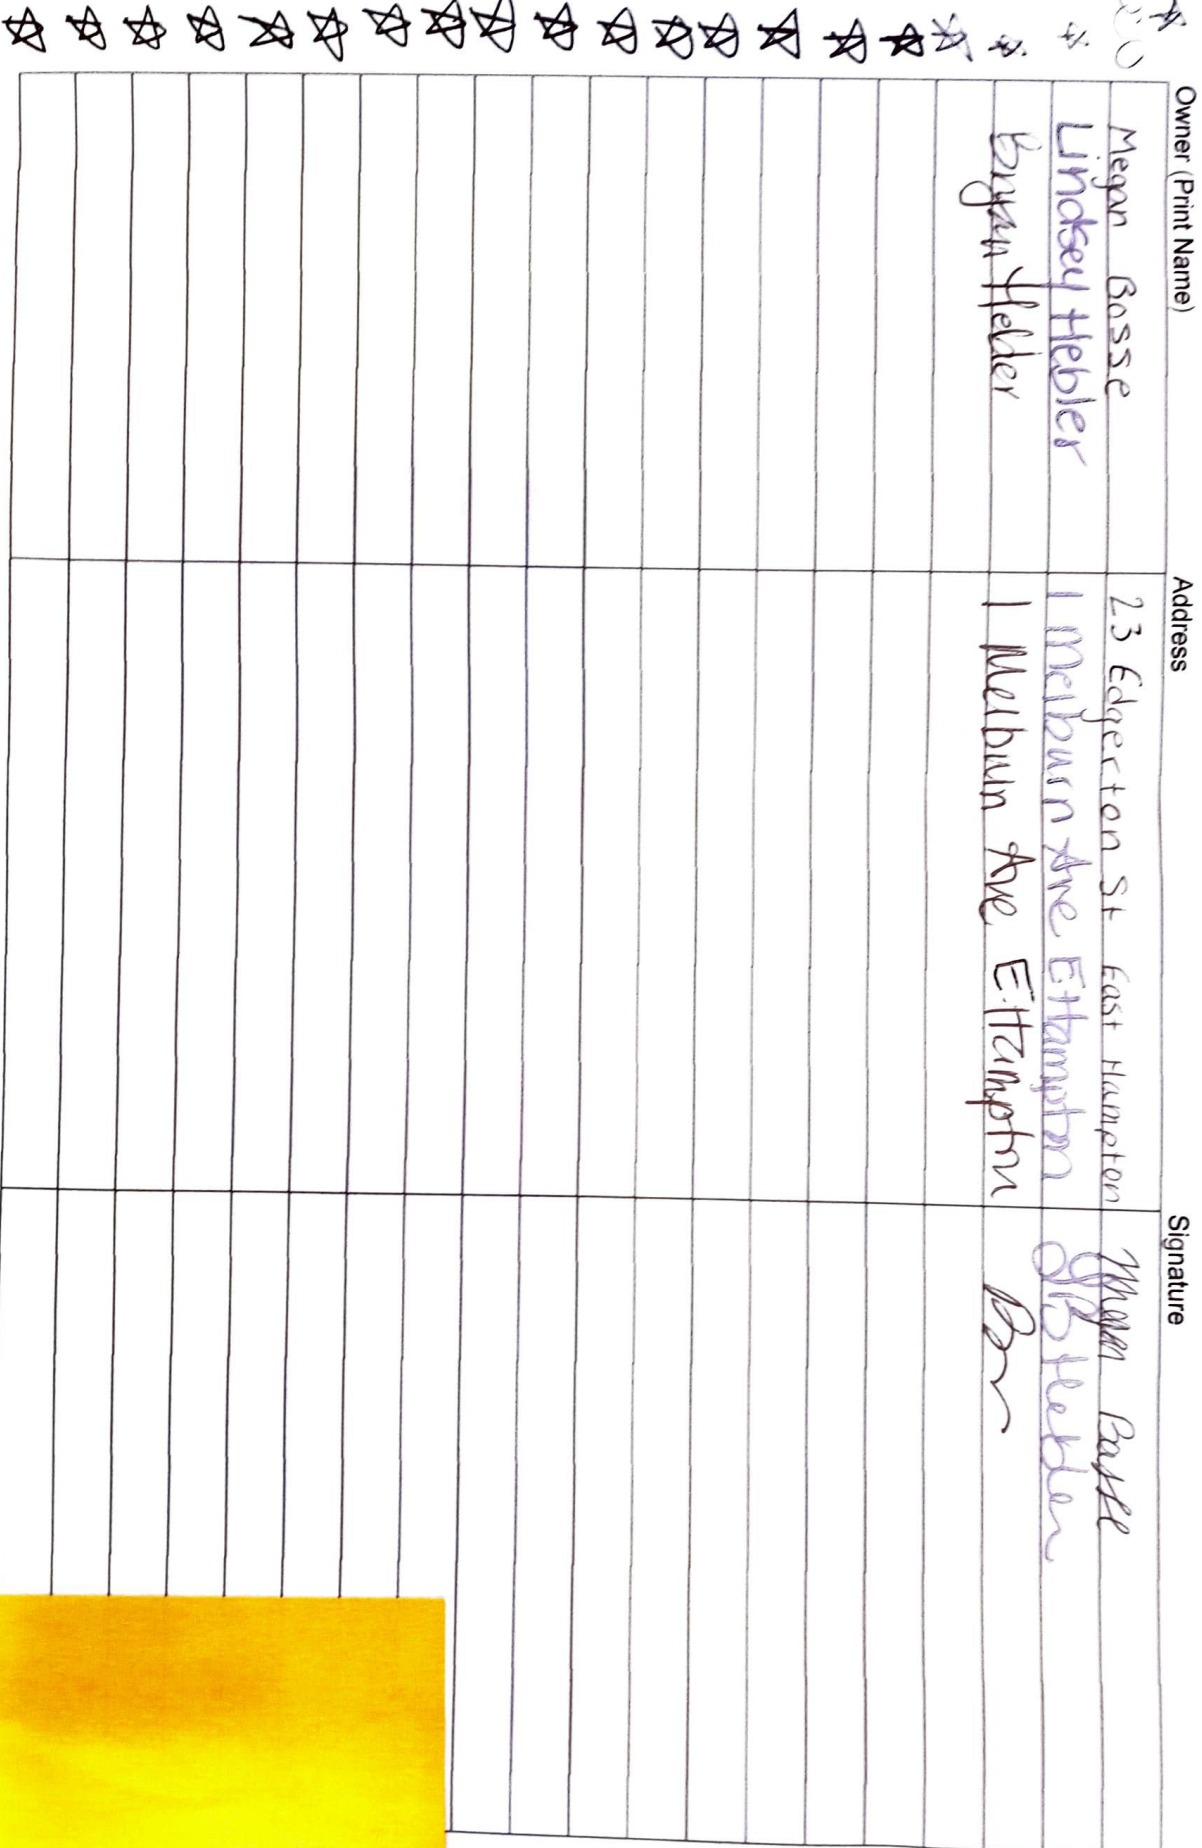 Owner (Print Name) Address Signature
Megan Bosse 23 Edgerton St East Hampton Megan Bosse
Lindsey Hebler 1 Melburn Ave E Hampton
Bryan Helder 1 Melburn Ave E. Hampton